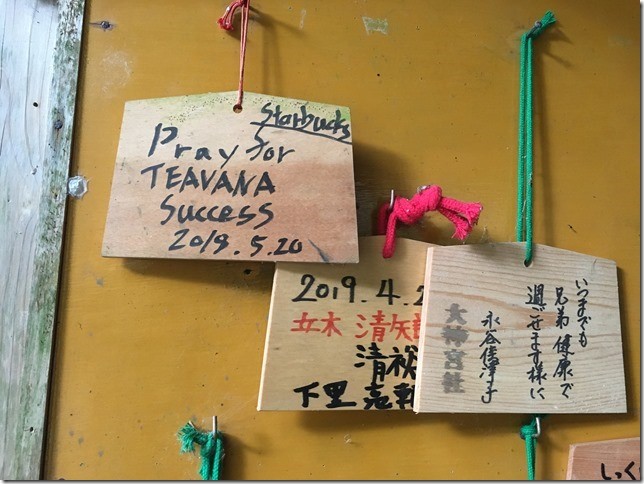 Starbucks
Pray for
TEAVANA
Success
2019.5.20
2019.4.2
清
下里
いつまでも
兄弟健康で
過ごせます様に
大神宮社
しっく